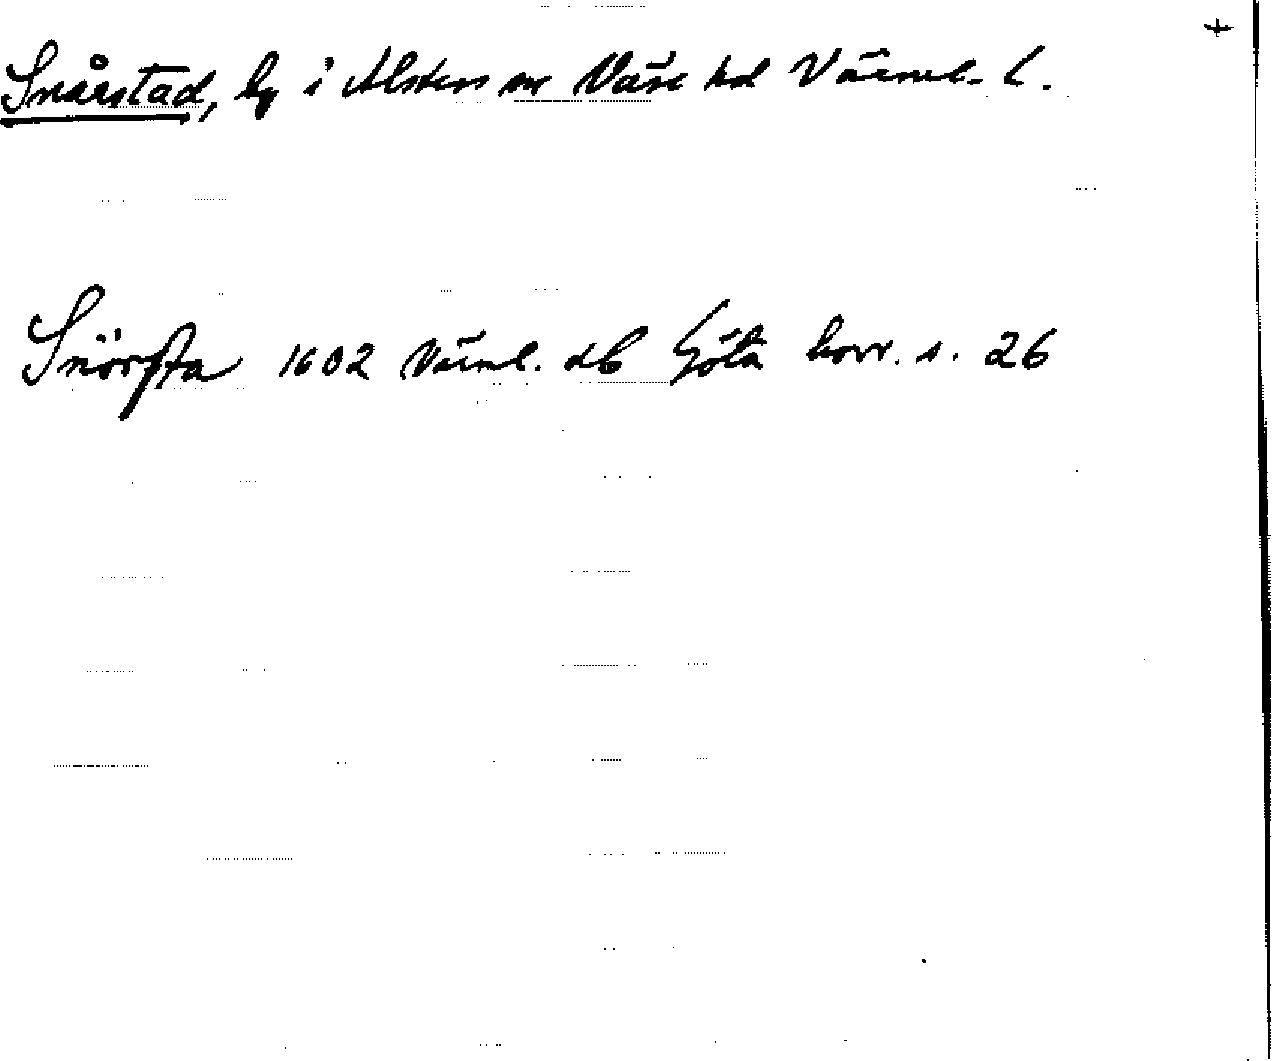 +
Snårstad, by i Alsters sn Väse hd Värml. l.
Snörsta 1602 Värml. db Göta hovr. s. 26